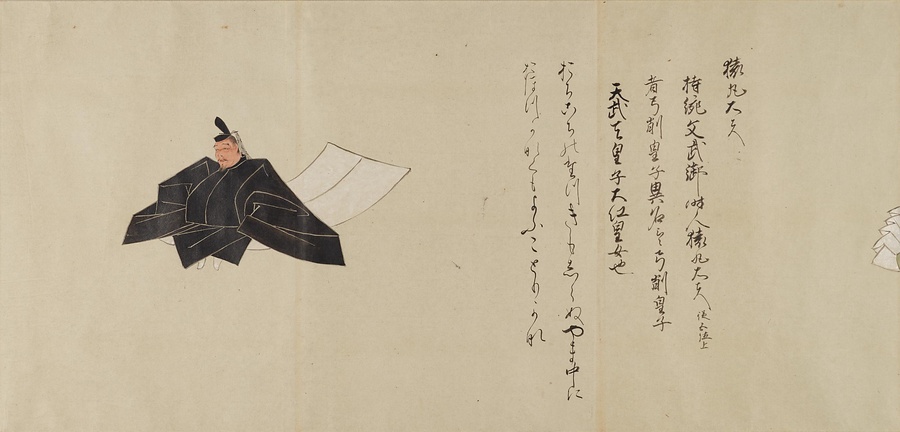 猿丸大夫
持統文武御時人猿丸大夫従五位上
者弓削皇子異名云々弓削皇子
天武天皇子大江皇女也
おちこちのたつきもしらぬやま中に
おほつかなくもよふことりかな